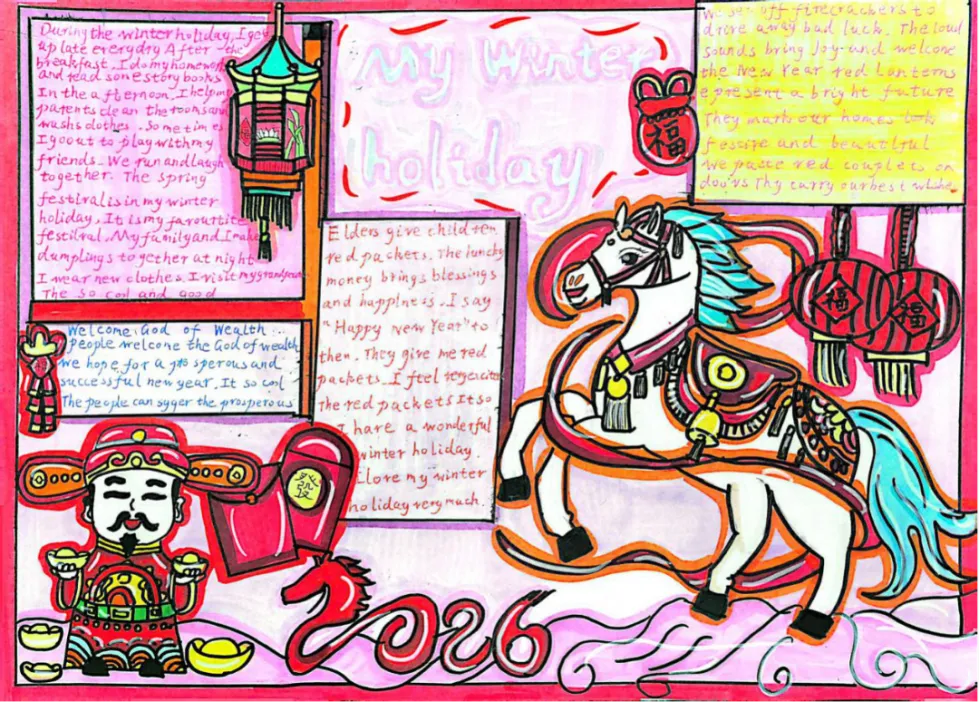 My Winter
holiday
During the winter holiday, I get
up late everydry After the
breakfast. I do my homework
and read sone story books
In the afternoon, I helping
parents clean the rooms and
washs clothes. Sometimes
I go out to play with my
friends. We run and laugh
together. The spring
festiral is in my winter
holiday. It is my farouttite
festilral. My family and I make
dumplings together at night
I wear new clothes. I visit my grandparents
The so cool and good
Welcome God of Wealth...
people welcome the God of wealth
we hope for a prosperous and
successful new year. It so cool
The people can sgger the prosperous
Elders give children
red packets. The luncky
money brings blessings
and happintis. I say
"Happy new Year" to
then. They give me red
packets. I feel
The red packets It so
I hare a wonderful
winter holiday.
I lore my winter
holiday very much.
We set off firecrackers to
drive away bad luck. The loud
sounds bring Joy and welcone
the New Year red Lanterns
epresent a bright future
They mark our homes look
festire and beautiful
We paste red couplets on
doors Thy carry our best wishe
福
福
福
2026